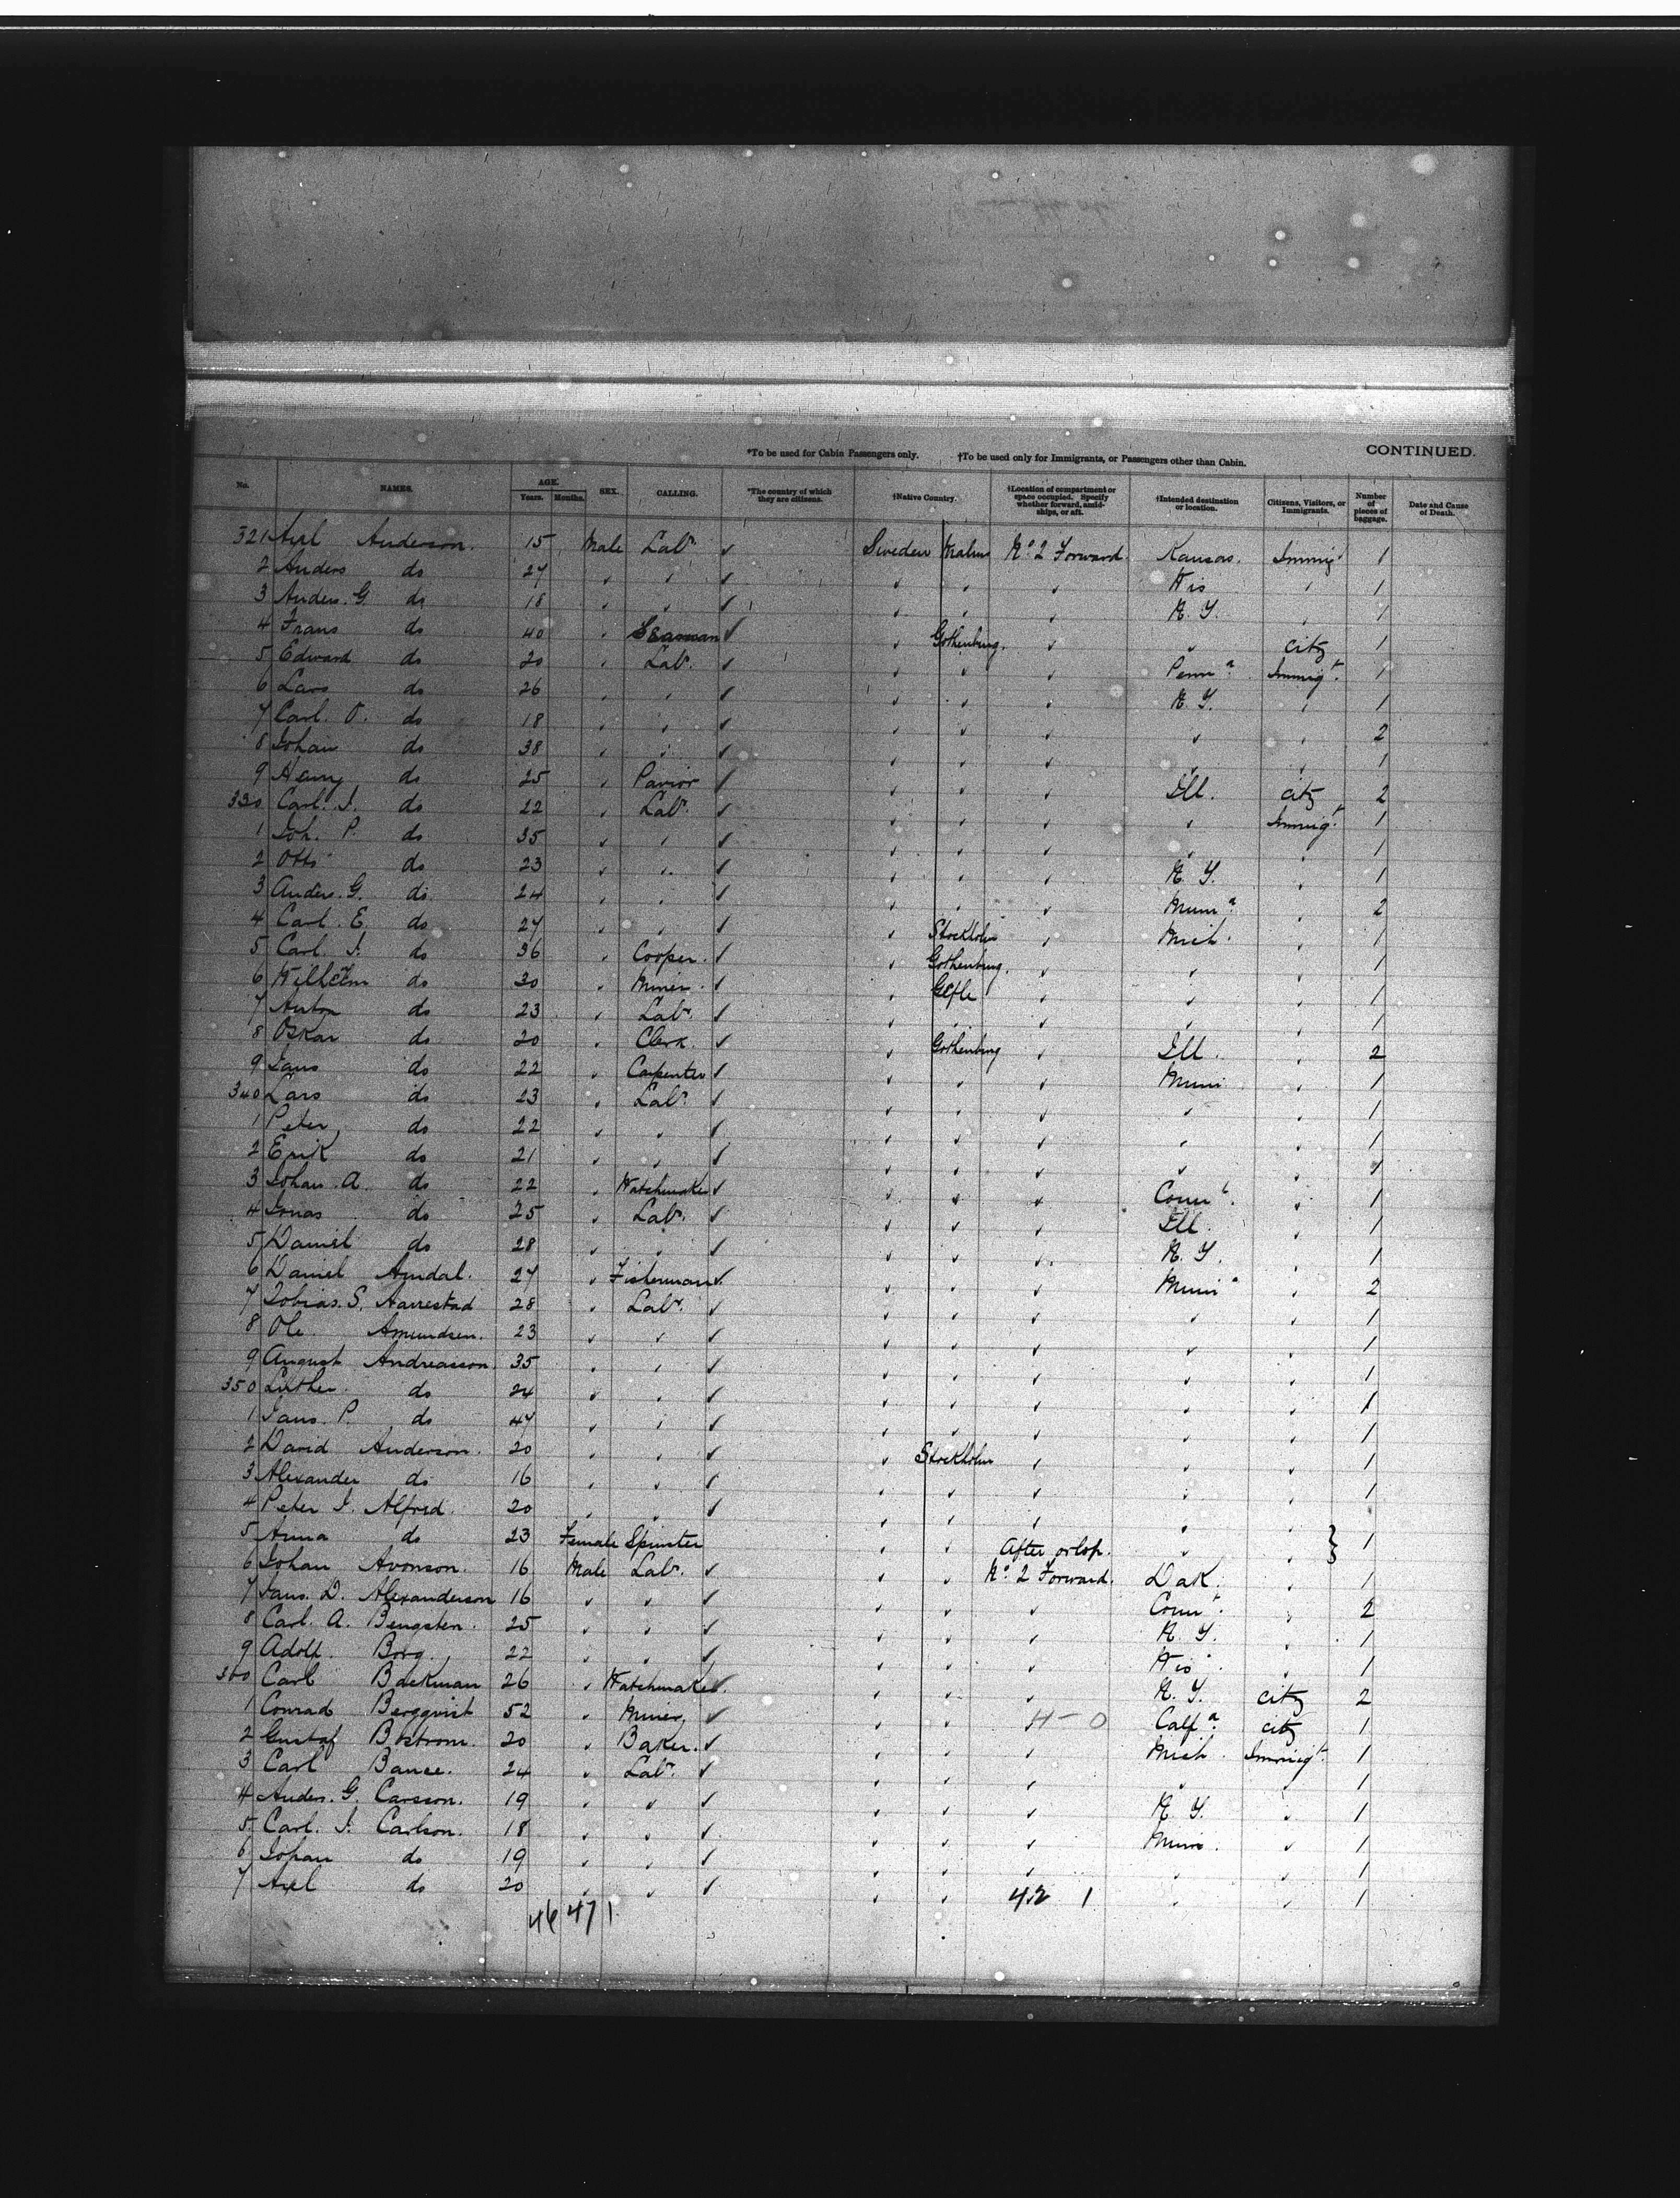 CONTINUED.
*To be used for Cabin Passengers only. †To be used only for Immigrants, or Passengers other than Cabin.
No. NAMES. AGE. Years. Months. SEX. CALLING. *The country of which they are citizens. †Native Country. †Location of compartment or space occupied. Specify whether forward, amidships, or aft. †Intended destination or location. Citizens, Visitors, or Immigrants. Number of pieces of baggage. Date and Cause of Death.
321 Axel Anderson. 15 Male Labr ✓ Sweden Malmo No 2 Forward. Kansas. Immigt 1
2 Anders do 27 ✓ Wis 1
3 Anders. G. do 18 ✓ N. Y. 1
4 Frans do 40 Seaman ✓ Gothenburg. city 1
5 Edward do 20 Labr. ✓ Penna. Immigt. 1
6 Lars do 26 ✓ N. Y. 1
7 Carl. O. do 18 ✓ 2
8 Johan do 38 ✓ 1
9 Henry do 25 Pavior ✓ Ill. city 2
330 Carl. J. do 22 Labr. ✓ Immigt. 1
1 Joh. P. do 35 ✓ 1
2 Otto do 23 ✓ N. Y. 1
3 Anders. G. do 24 ✓ 2
4 Carl. E. do 27 ✓ Stockholm Mich. 1
5 Carl. J. do 36 Cooper. ✓ Gothenburg. 1
6 Wilhelm do 30 Miner. ✓ Gefle 1
7 Anton do 23 Labr. ✓ 1
8 Oskar do 20 Clerk. ✓ Gothenburg Ill. 2
9 Jans do 22 Carpenter ✓ Minn 1
340 Lars do 23 Labr. ✓ 1
1 Peter do 22 ✓ 1
2 Erik do 21 ✓ 1
3 Johan. A. do 22 Watchmaker ✓ Connt. 1
4 Jonas do 25 Labr. ✓ Ill 1
5 Daniel do 28 ✓ N. Y. 1
6 Daniel Arndal. 27 Fisherman ✓ Minna 2
7 Tobias. S. Aarrestad 28 Labr. ✓ 1
8 Ole Amundsen. 23 ✓ 1
9 August Andreasson. 35 ✓ 1
350 Luther. do 24 ✓ 1
1 Jans. P. do 47 ✓ 1
2 David Anderson. 20 ✓ Stockholm 1
3 Alexander do 16 ✓ 1
4 Peter J. Alfred. 20 ✓
5 Anna do 23 Female Spinster After orlop. } 1
6 Johan Aronson. 16 Male Labr. ✓ No 2 Forward. Dak. 1
7 Jans. D. Alexanderson 16 ✓ Connt. 2
8 Carl. A. Bengsten. 25 ✓ N. Y. 1
9 Adolf. Borg. 22 ✓ Wis 1
360 Carl Backman 26 Watchmaker. ✓ N. Y. city 2
1 Conrad Bergqvist 52 Miner. ✓ H - O Calfa. city 1
2 Gustaf Bostrom. 20 Baker. ✓ Mich. Immigt. 1
3 Carl 24 Labr. ✓ 1
4 Anders. G. Carsson. 19 ✓ N. Y. 1
5 Carl. J. Carlson. 18 ✓ Minn. 1
6 Johan do 19 ✓ 1
7 Axel do 20 ✓ 1
46 47 1 42 1